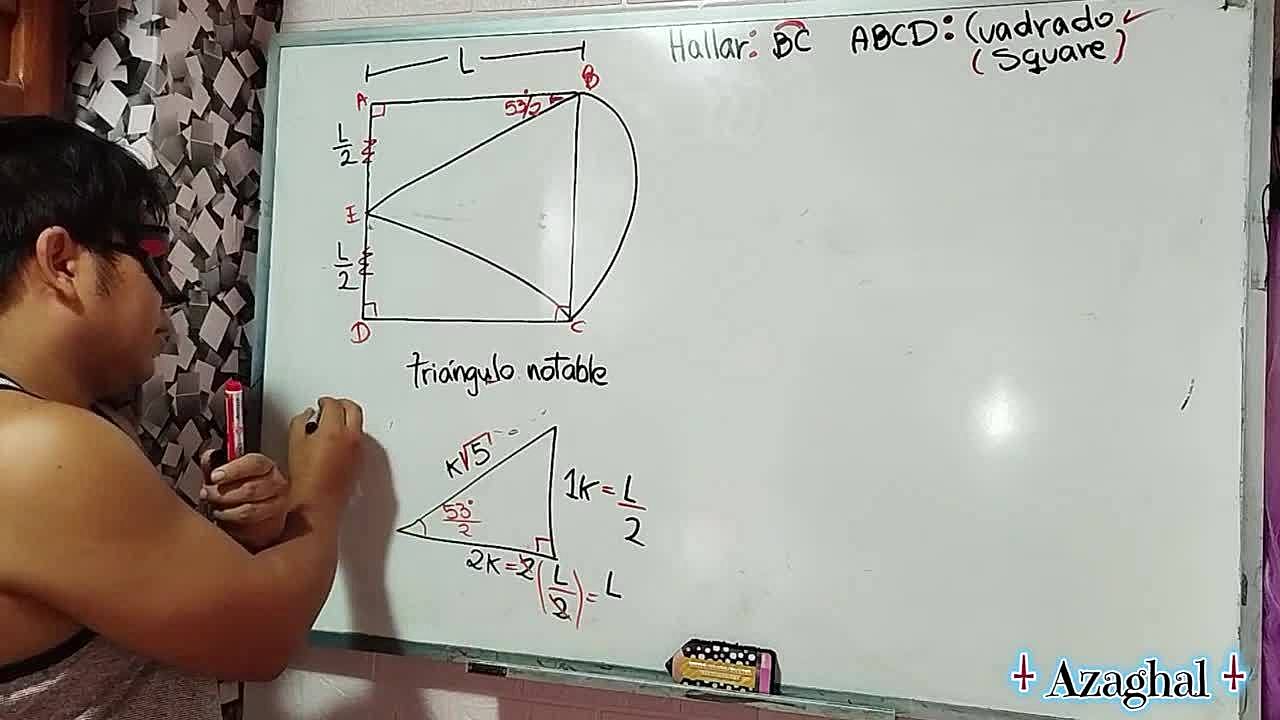 Hallar: BC ABCD: Cuadrado ✓
(Square)
L
A
B
53°/2
L/2
E
L/2
D
C
triángulo notable
K√5
1K = L/2
53°/2
2K = 2(L/2) = L
Azaghal